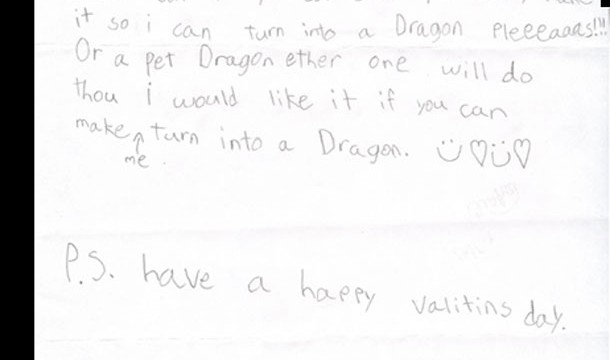 it so i can turn into a Dragon Pleeeaaas!!!
Or a pet Dragon ether one will do
thou i would like it if you can
make turn into a Dragon. ü♡ü♡
me
P.S. have a happy valitins day.